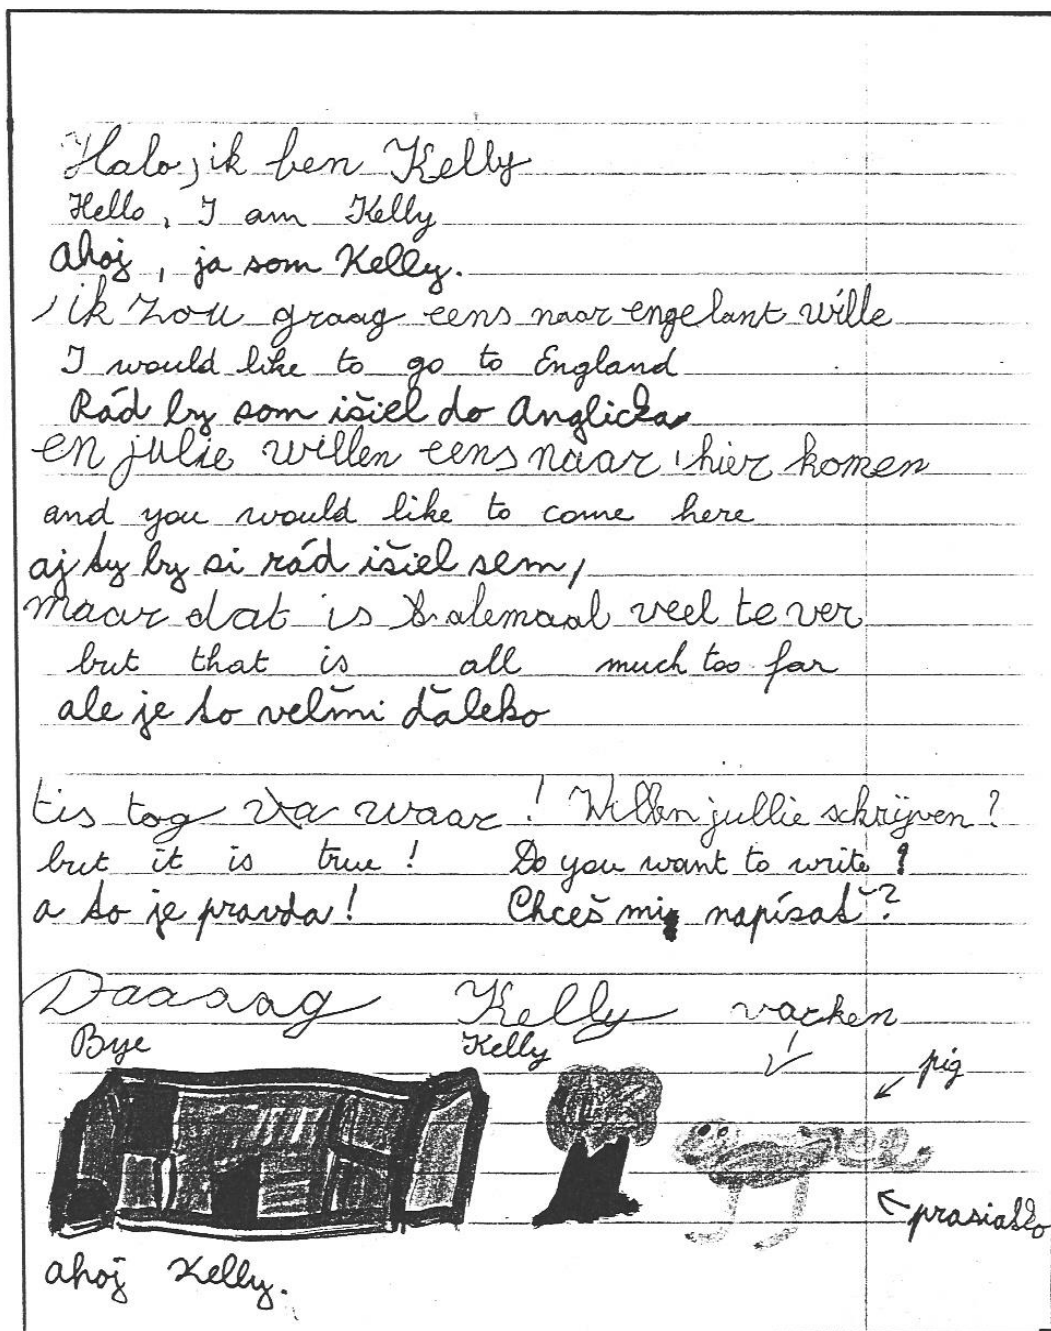 Halo, ik ben Kelly
Hello, I am Kelly
Ahoj, ja som Kelly.
ik zou graag eens naar engelant wille
I would like to go to England
Rád by som išiel do Anglicka
en julie willen eens naar hier komen
and you would like to come here
aj ty by si rád išiel sem,
maar dat is alemaal veel te ver
but that is all much too far
ale je to velmi ďaleko
tis tog waar! Willen jullie schrijven?
but it is true! Do you want to write?
a to je pravda! Chceš mi napísať?
Daaaag Kelly varken
Bye Kelly
pig
prasiatko
ahoj Kelly.